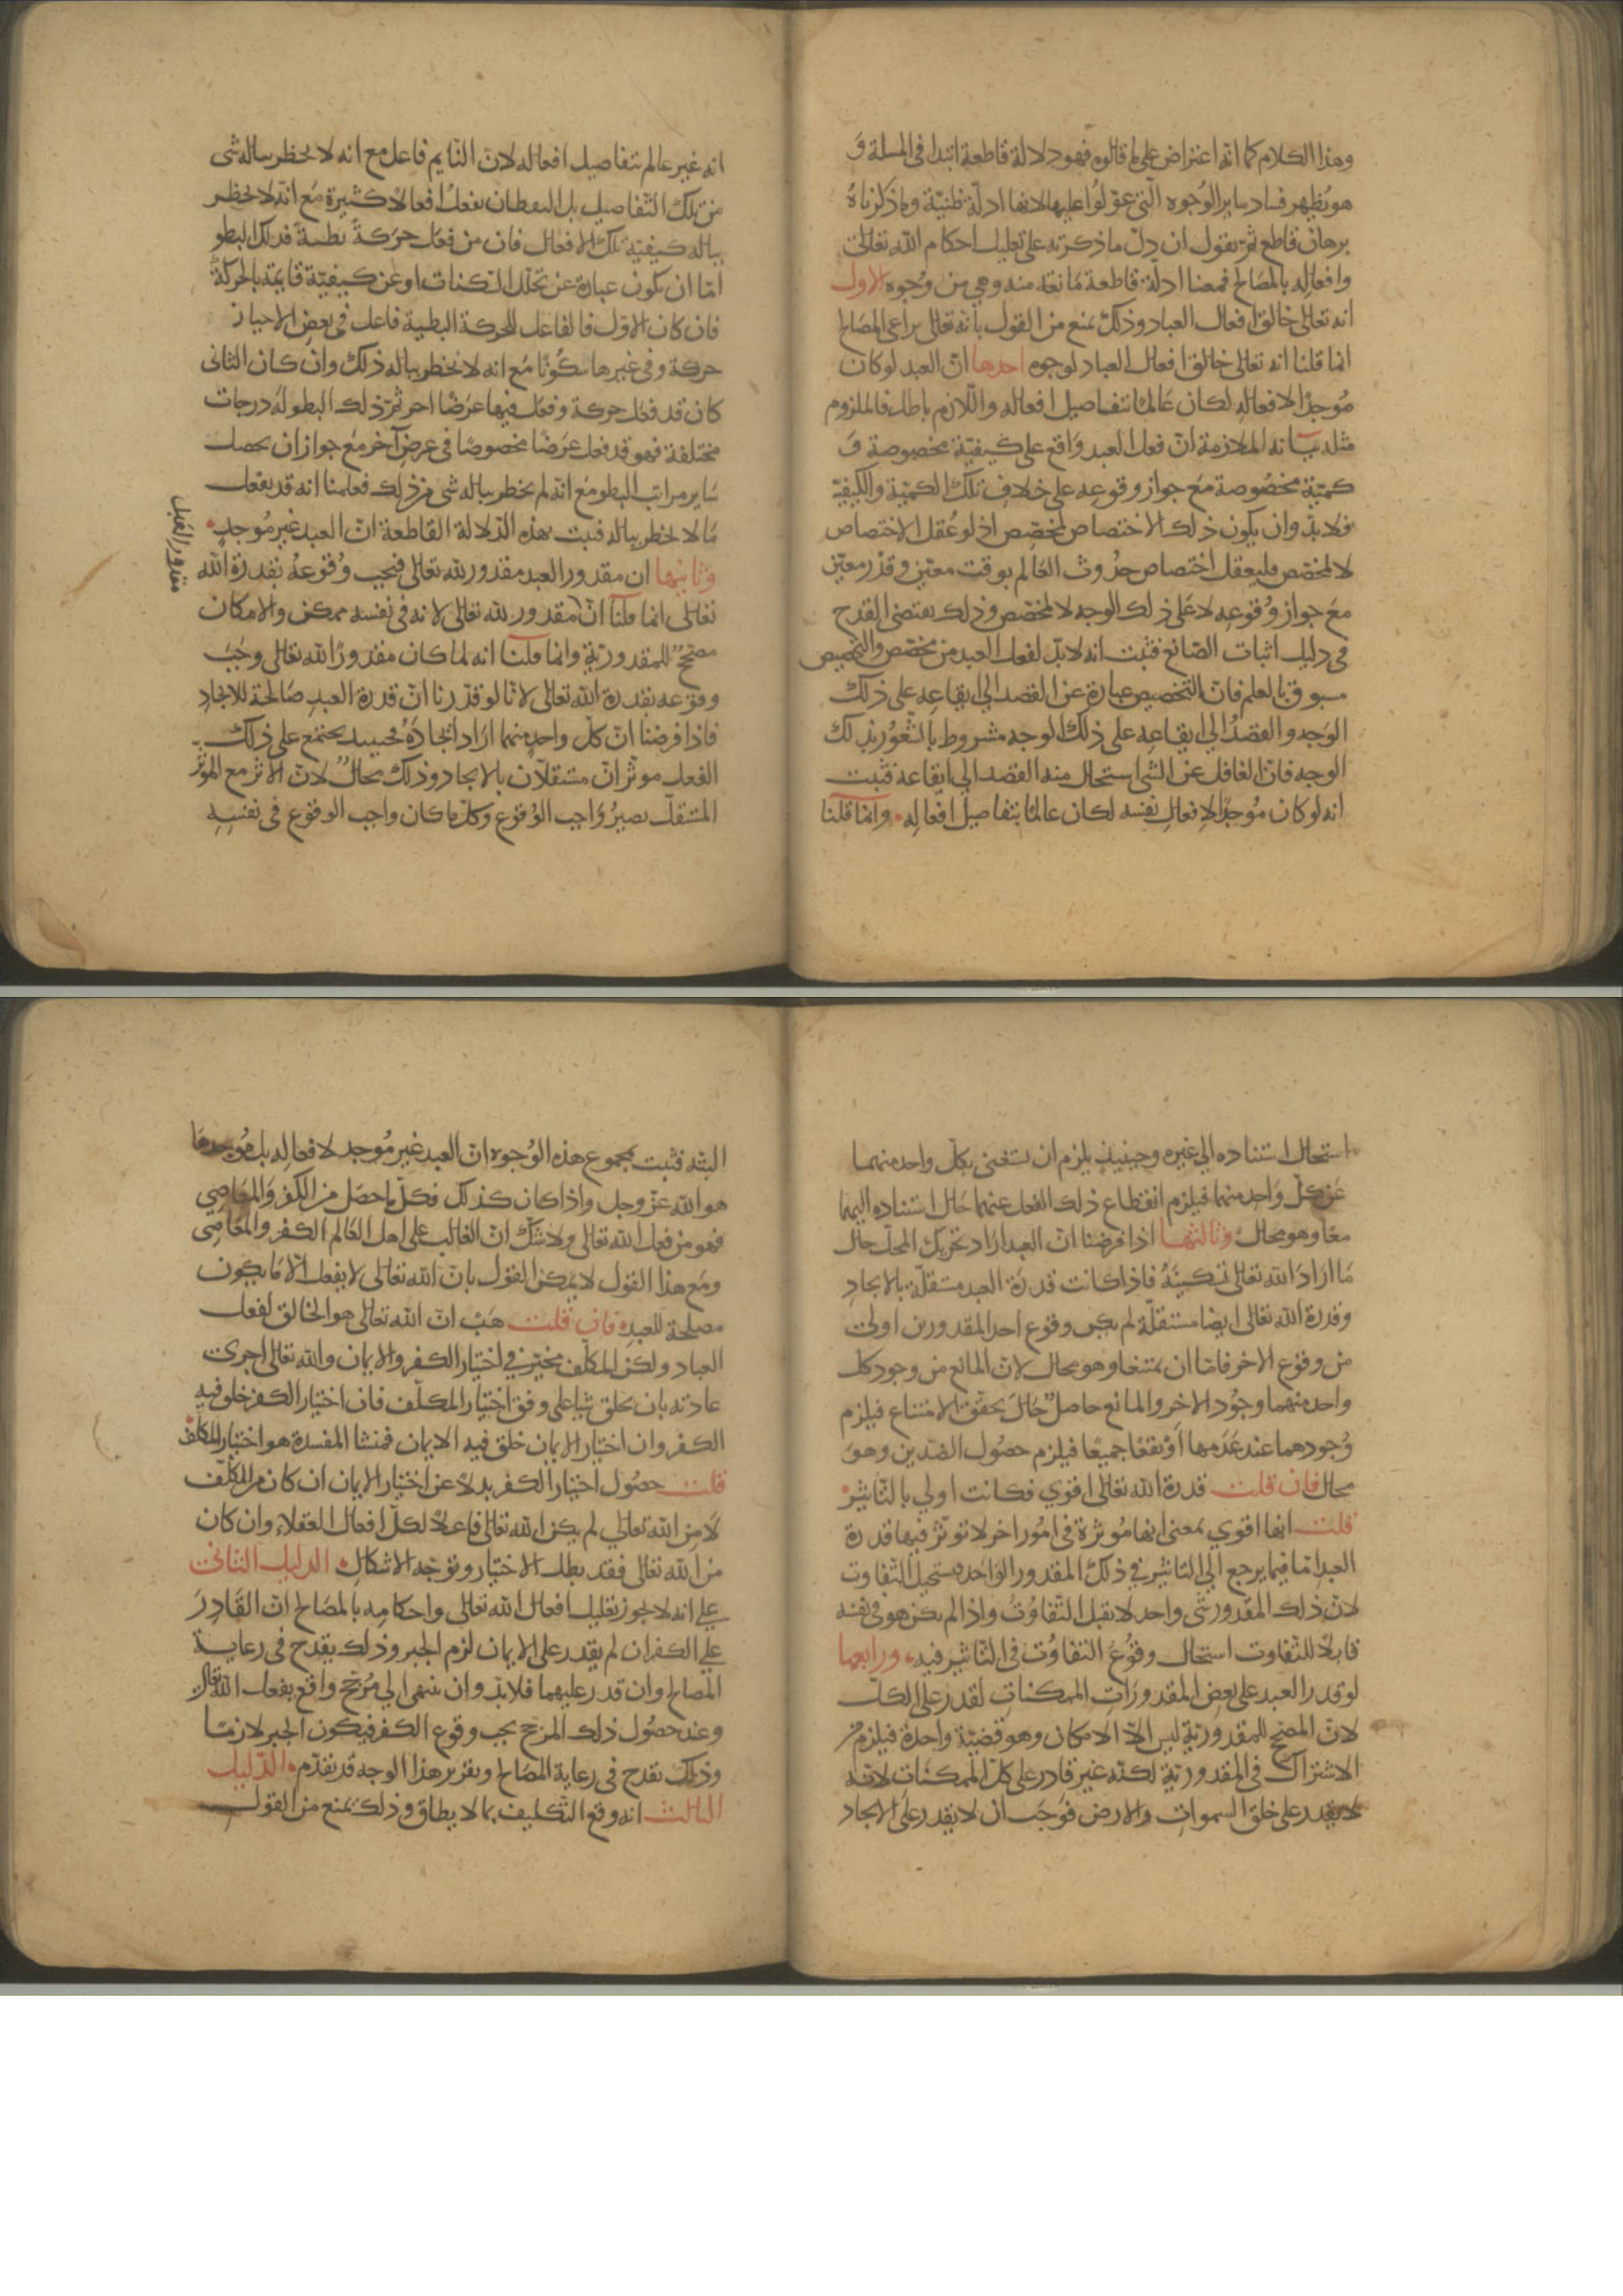 وهذا الكلام كما انه اعتراض على ما قالوه فهو دلالة قاطعة ابتدا في المسلة و
هو يُظهر فساد ساير الوُجوه التي عوّلوُا عليها لانها ادلّة ظنيّة وما ذكرناهُ
برهان قاطع ثمّ نقول ان دلّ ما ذكرته على تعليل احكام الله تعالى
وافعاله بالمصَالح فمعنا ادلّة قاطعة مَانعة منه وهي من وُجوه الاول
انه تعالى خالق افعال العباد وذلك يمنع من القول بأنه تعالى يراعى المصَالح
انما قلنا انه تعالى خالق افعال العباد لوجوه احدها انّ العبد لو كان
مُوجدًا لافعاله لكان عَالمًا بتفاصيل افعاله واللازم باطل فالملزوم
مثله بيَانه الملازمة انّ فعل العبد وَاقع على كيفيّة مخصوصة وَ
كميّة مخصُوصة مَع جواز وقوعه على خلاف تلك الكميّة والكيفيّة
فلا بدّ وان يكون ذلك الاختصاص لمخصّص اذ لو عُقل الاختصاص
لا لمخصّص فليعقل اختصاص حدُوث العَالم بوقت معيّن وقدْر معيّن
مَع جواز وُقوعه لا عَلى ذلك الوجه لا لمخصّص وذلك يقتضى القدح
في دليل اثبات الصّانع فثبت انه لا بدّ لفعل العبد من مخصّص والتخصيص
مسبوق بالعلم فانّ التخصيص عبارة عن القصد الي ايقاعه على ذلك
الوَجه والقصدُ الي ايقاعه على ذلك الوجه مشروط بالشعُور بذلك
الوجه فانّ الغافل عن الشى استحال منه القصد الي ايقاعه فثبت
انه لو كان مُوجدًا لافعال نفسه لكان عالمًا بتفاصيل افعاله وانما قلنا
انه غير عالم بتفاصيل افعاله لانّ النّايم فاعل مع انه لا يخطر بباله شى
من تلك التّفاصيل بل اليقظان يفعل افعالاً كثيرة مَع انّه لا يخطر
بباله كيفيّة تلك الافعال فان من فعَل حرَكةً بطيئةً فذلك البطو
امّا ان يكون عبارة عن تخلّل السّكنات او عن كيفيّة قايمة بالحركة
فان كان الاوّل فالفاعل للحركة البطيئة فاعل في بعض الاحياز
حركة وفي غيرها سكُونًا مَع انه لا يخطر بباله ذلك وان كان الثاني
كان قد فعَل حركة وفعَل فيها عرَضًا اخر ثمّ ذلك البطو لهُ درجات
مختلفة فهو قد فعل عَرَضًا مخصوصًا في عرض آخر مَع جواز ان يحصل
سَاير مراتب البطو مَع انّه لم يخطر بباله شى من ذلك فعلمنا انه قد يفعل
مَا لا يخطر بباله فثبت بهذه الدّلالة القاطعة انّ العبد غير مُوجدٍ
وثانيها ان مقدور العبد مقدور لله تعالى فيجب وُقوعهُ بقدرة الله
تعالى انما قلنا انّ مقدور لله تعالى لانه في نفسه ممكن والامكان
مقدور العبد
مصحّح للمقدوريّة وانما قلنا انه لما كان مقدورًا لله تعالى وجَبَ
وقوعه بقدرة الله تعالى لانّا لو قدّرنا انّ قدرة العبد صَالحة للايجاد
فاذا فرضنا انّ كل واحدٍ منهما ارَاد ايجادَهُ فحينيذ يجتمع على ذلك
الفعل موثّران مستقلّان بالايجاد وذلك محالٌ لانّ الاثر مع الموثّر
المستقلّ يصيرُ وَاجب الوُقوُع وكلّ ما كان واجب الوقوع في نفسِهِ
استحال استناده الي غيره وحينيذٍ يلزم ان يستغنى بكلّ واحد منهما
عن كلّ وَاحدٍ منهما فيلزم انقطاع ذلك الفعل عنهما حَال استناده اليهما
معًا وهو محال وثالثها اذا فرضنا انّ العبد ارَاد تحريك المحلّ حال
مَا ارَادَ الله تعالى تسكينَهُ فاذا كانت قدرَة العبد مستقلّة بالايجادِ
وقدرة الله تعالى ايضا مستقلّة لم يكن وقوع احد المقدورين اولى
من وقوع الاخر فامّا ان يمتنعا وهو محال لانّ المانع من وجود كلّ
واحد منهما وجُود الاخر والمانع حاصلٌ حَال تحقّق الامتناع فيلزم
وُجودهما عند عَدَمهما اوْ يقعَا جميعًا فيلزم حصُول الضدّين وهوَ
محال فان قلت قدرة الله تعالى اقوي فكانت اولي بالتّاثير
قلت انها اقوي بمعنى انها مُوثرة في امُور اخر لا توثّر فيها قدرة
العبد امّا فيما يرجع الي التّاثير في ذلك المقدور الوَاحد يستحيل التّفاوت
لانّ ذلك المقدور شى واحد لا يقبل التّفاوُت واذا لم يكن هو في نفسه
قابلًا للتّفاوت استحال وقوُعُ التفاوُت في التّاثير فيه ورابعها
لو قدر العبد على بعض المقدورَات الممكنات لقدر على الكلّ
لانّ المصحّح للمقدوريّة ليس الاّ الامكان وهو قضيّة واحدة فيلزم من
الاشتراك في المقدوريّة لكنّه غير قادر على كلّ الممكنات لانّه
لا يقدر على خلق السموات والارض فوَجَب ان لا يقدر علَى الايجاد
البتّه فثبت بمجموع هذه الوُجوه انّ العبد غير مُوجد لافعاله بل مُوجدهَا
هو الله عزّ وجل واذا كان كذلك فكلّ ما حصَل من الكفر وَالمعَاصِي
فهو من فعل الله تعالى ولا شكّ انّ الغالب على اهل العَالم الكفر والمعَاصِى
ومَع هذا القول لا يمكن القول بانّ الله تعالى لا يفعل الاّ مَا يكون
مصلحة للعبدِ فان قلت هَبْ انّ الله تعالى هو الخالق لفعل
العباد ولكن المكلّف مخيّر في اختيار الكفر والايمان والله تعالى اجرى
عادته بان يخلق شيا على وفق اختيار المكلّف فان اختيار الكفر خلق فيه
الكفر وان اختيار الايمان خلق فيه الايمان فمنشا المفسدة هو اختيار المكلّف
قلت حصُول اختيار الكفر بدلاً عن اختيار الايمان ان كان من المكلّف
لا من الله تعالي لم يكن الله تعالى فاعلًا لكلّ افعال العقلاء وان كان
من الله تعالى فقد بطل الاختيار وتوجّه الاشكال الدليل الثاني
على انه لا يجوز تعليل افعال الله تعالى واحكامه بالمصَالح انّ القَادِرَ
على الكفر ان لم يقدر على الايمان لزم الجبر وذلك يقدح في رعاية
المصَالح وان قدر عليهما فلا بدّ وان ينتهى الي مُرَجّح واقع بفعل الله تعالى
وعند حصُول ذلك المرجّح يجب وقوع الكفر فيكون الجبر لازمًا
وذلك يقدح في رعاية المصَالح وتقرير هذا الوجه قد تقدّم الدّليل
الثالث انه وقع التكليف بما لا يطاق وذلك يمنع من القول